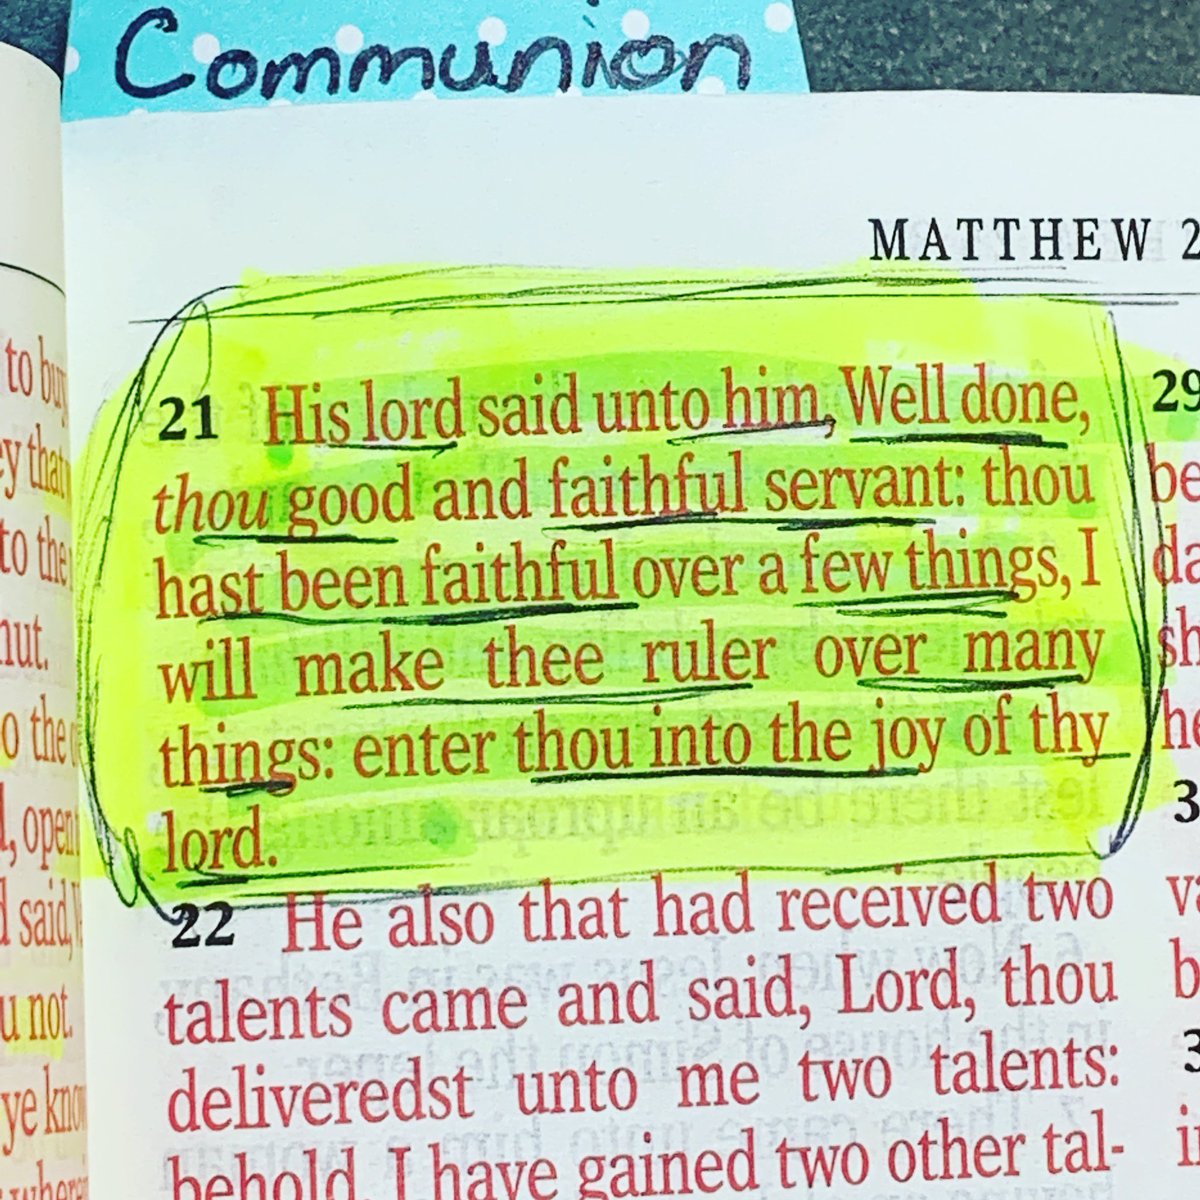 Communion
MATTHEW 2
to buy
that
to the
nut.
so the
open
said,
u not.
ye know
where
21 His lord said unto him, Well done,
thou good and faithful servant: thou
hast been faithful over a few things, I
will make thee ruler over many
things: enter thou into the joy of thy
lord.
22 He also that had received two
talents came and said, Lord, thou
deliveredst unto me two talents:
behold, I have gained two other tal-
29
be
da
sh
he
3
va
b
3
in